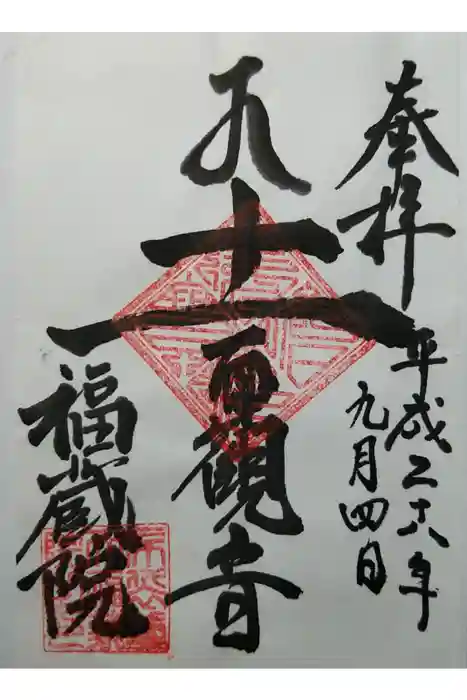 奉拝
平成二十六年
九月四日
十一面観音
福蔵院